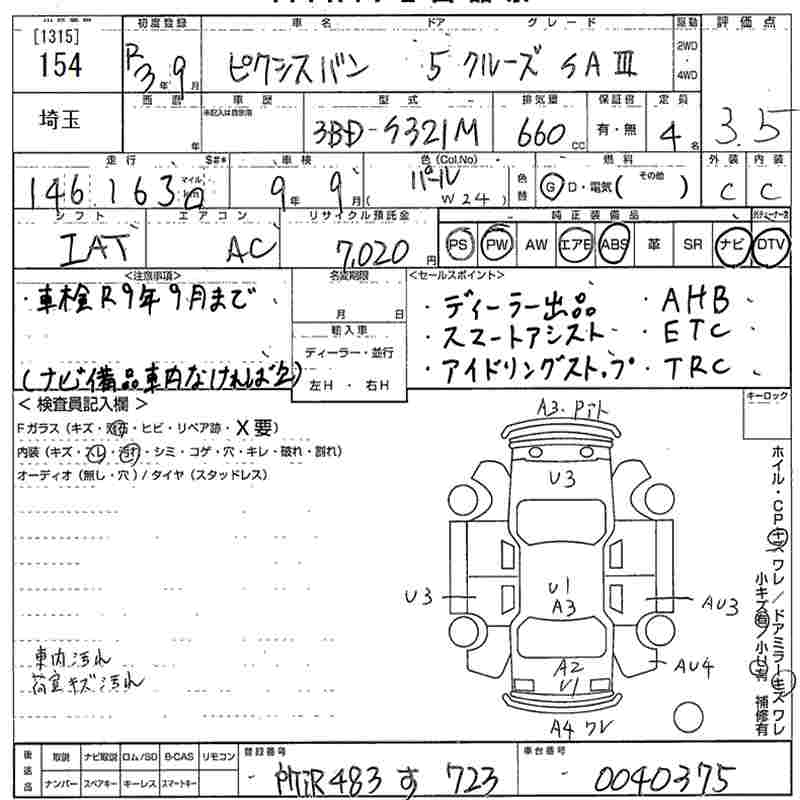 [1315]
154
埼玉
初度登録 車名 ドア グレード 駆動 評価点
R3年9月 ピクシスバン 5 クルーズSAⅢ 2WD・4WD 3.5
車歴 型式 排気量 保証書 定員
未記入は自家用
年 3BD-S321M 660cc 有・無 4名
走行 S#* 車検 色(Col.No) 燃料 外装 内装
146,163 マイル km 9年9月 パール W24 色替 Ⓖ D・電気( その他 ) C C
シフト エアコン リサイクル預託金 純正装備品
IAT AC 7,020円 PS PW AW エアB ABS 革 SR ナビ DTV
<注意事項> 名変期限 <セールスポイント>
・車検R9年9月まで
月 日
輸入車
ディーラー・並行
左H・右H
(ナビ備品車内なければ欠)
・ディーラー出品 ・AHB
・スマートアシスト ・ETC
・アイドリングストップ ・TRC
<検査員記入欄> キーロック
Fガラス(キズ・飛石・ヒビ・リペア跡・X要)
内装(キズ・スレ・汚れ・シミ・コゲ・穴・キレ・破れ・割れ)
オーディオ(無し・穴)/タイヤ(スタッドレス)
A3.Pit
U3
U3
U1
A3
AU3
A2
U1
AU4
A4ワレ
ホイル・CPキズワレ/ドアミラーキズワレ
小キズ有/小U有 補修有
車内汚れ
荷室キズ汚れ
後送品 取説 ナビ取説 ロム/SD B-CAS リモコン
ナンバー スペアキー キーレス スマートキー
登録番号
所沢483す723
車台番号
0040375